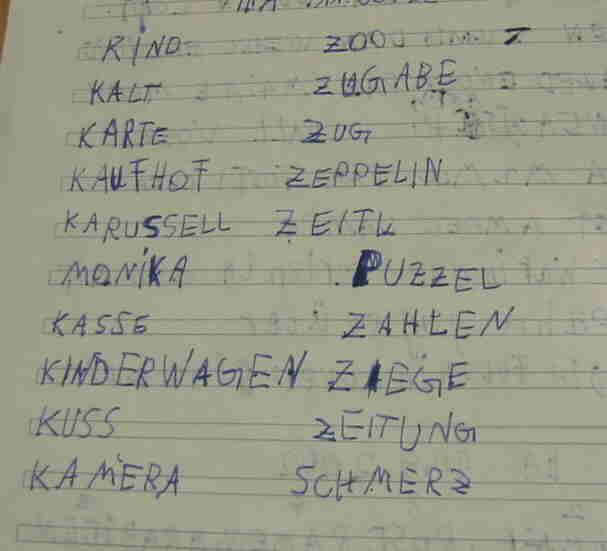 RIND ZOOO Z
KALT ZUGABE
KARTE ZUG
KAUFHOF ZEPPELIN
KARUSSELL ZEITU
MONIKA PUZZEL
KASSE ZAHLEN
KINDERWAGEN ZIEGE
KUSS ZEITUNG
KAMERA SCHMERZ